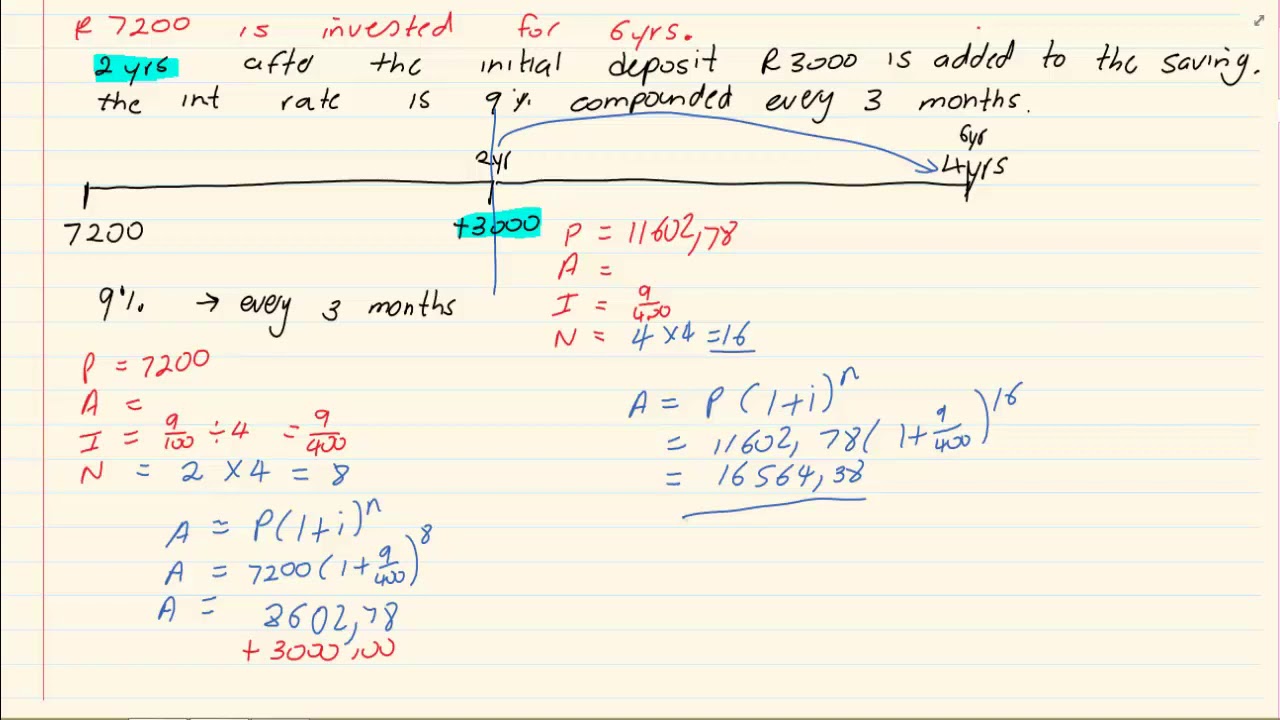 R 7200 is invested for 6yrs.
2 yrs after the initial deposit R3000 is added to the saving.
the int rate is 9% compounded every 3 months.
6yr
2yr
4yrs
7200
+3000
9% → every 3 months
P = 7200
A =
I = 9/100 ÷ 4 = 9/400
N = 2 x 4 = 8
A = P(1+i)^n
A = 7200(1+9/400)^8
A = 8602,78
+ 3000,00
P = 11602,78
A =
I = 9/400
N = 4 x4 =16
A = P(1+i)^n
= 11602,78(1+9/400)^16
= 16564,38